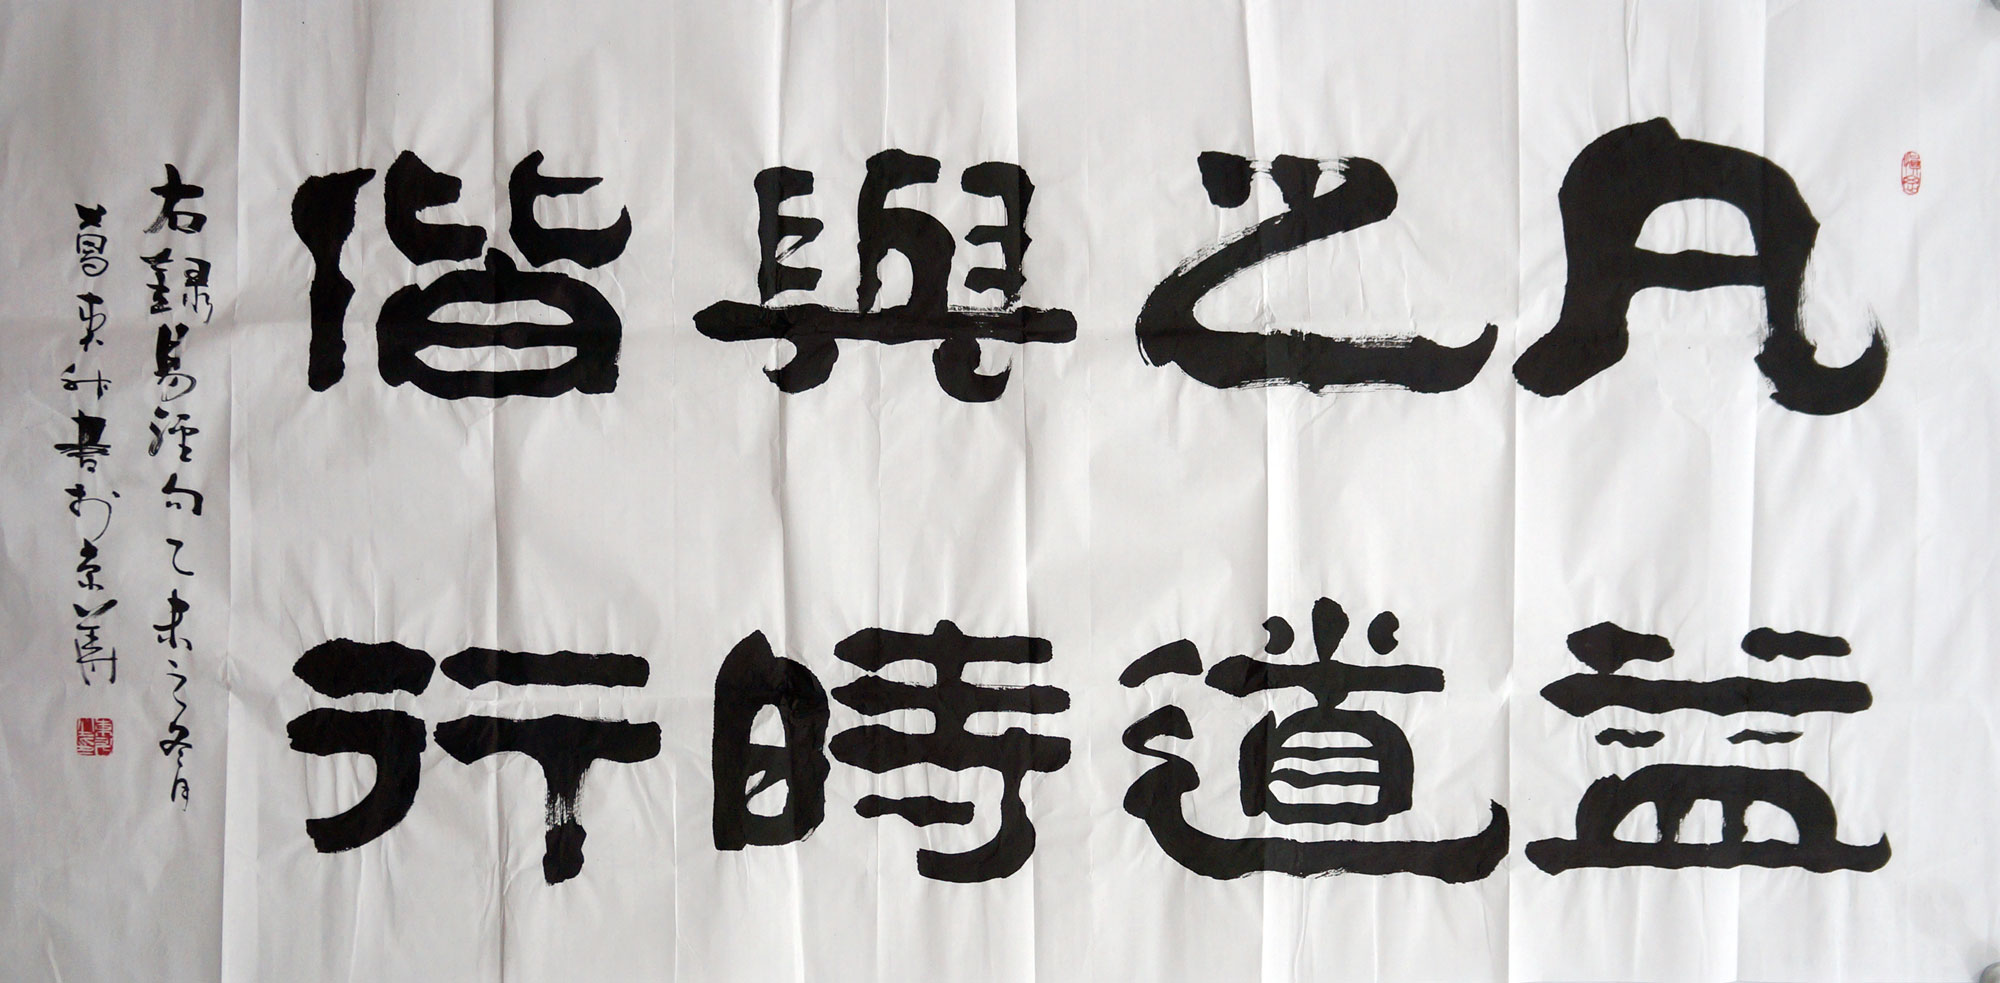 凡益
之道
與時
偕行
右録易經句乙未之冬月
葛東升書於京華